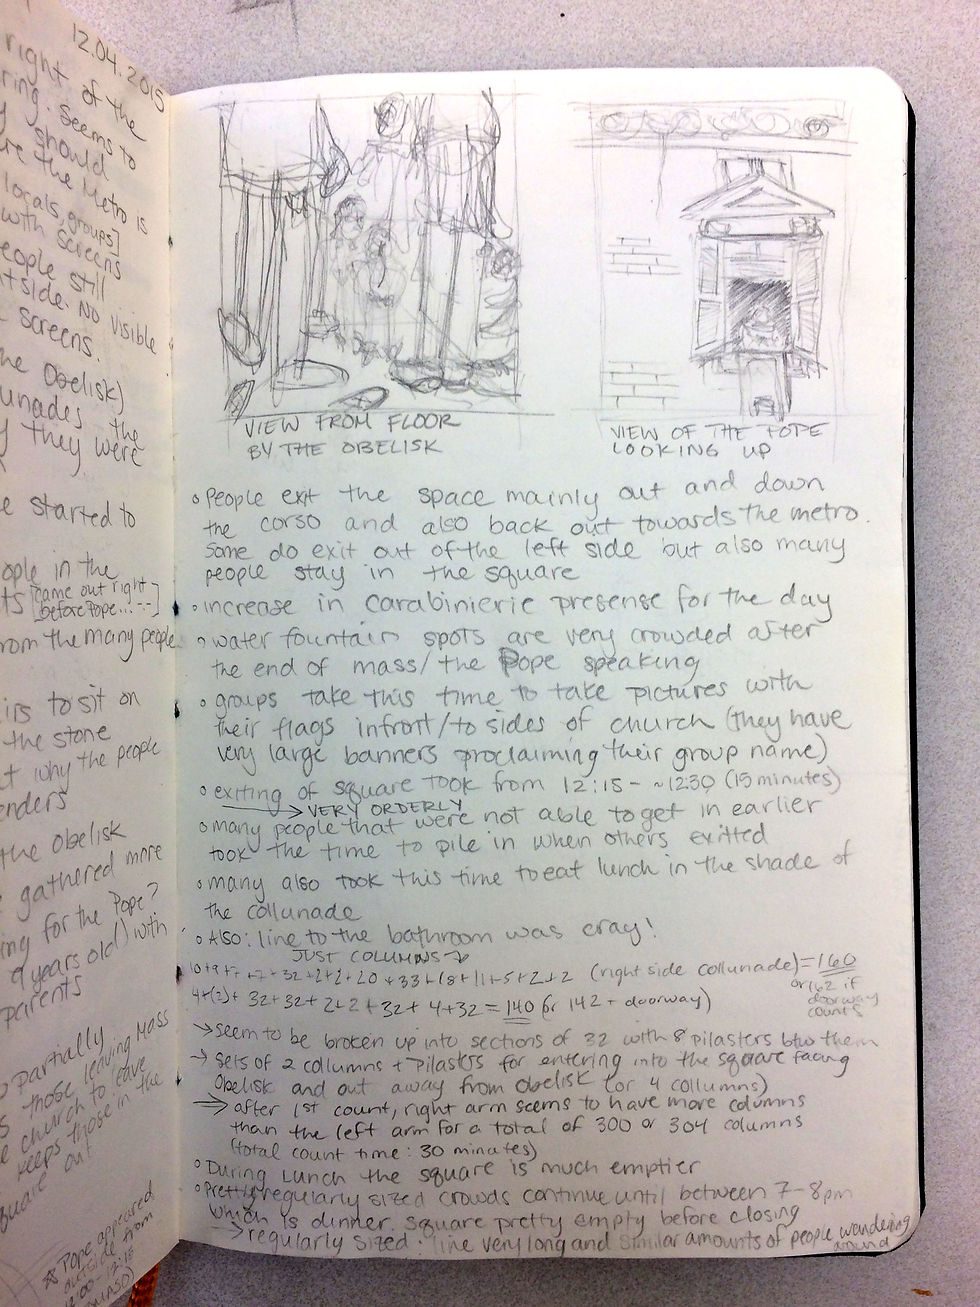 12.04.2015
right of the
ring. Seems to
should
the Metro is
locals, groups]
with screens
people still
tside. No visible
screens.
the Obelisk)
unades the
they were
started to
ople in the
[came out right
before Pope...--]
rom the many people
irs to sit on
the stone
t why the people
enders
the obelisk
gathered more
ing for the Pope?
9 years old) with
parents
partially
those leaving Mass
church to leave
keeps those in the
square out
☆ Pope appeared
outside from
12:00-12:15
VIEW FROM FLOOR
BY THE OBELISK
VIEW OF THE POPE
LOOKING UP
o People exit the space mainly out and down
the corso and also back out towards the metro.
Some do exit out of the left side but also many
people stay in the square
• increase in carabinierie presense for the day
o water fountain spots are very crowded after
the end of mass/the Pope speaking
o groups take this time to take pictures with
their flags infront/to sides of church (they have
very large banners proclaiming their group name)
o exiting of square took from 12:15- ~12:30 (15 minutes)
→ VERY ORDERLY
o many people that were not able to get in earlier
took the time to pile in when others exitted
o many also took this time to eat lunch in the shade of
the collunade
o Also: line to the bathroom was cray!
JUST COLUMNS ↓
10+9+7+7+32+2+2+20+33+18+11+5+2+2 (right side collunade)=160
or 162 if
doorway
counts
4+(2)+32+32+2+2+32+4+32=140 (or 142 + doorway)
→ seem to be broken up into sections of 32 with 8 pilasters btw them
→ sets of 2 columns + pilasters for entering into the square facing
Obelisk and out away from obelisk (or 4 collumns)
⇒ after 1st count, right arm seems to have more columns
than the left arm for a total of 300 or 304 columns
(total count time: 30 minutes)
o During Lunch the square is much emptier
o Pretty regularly sized crowds continue until between 7-8pm
which is dinner. square pretty empty before closing
→ regularly sized: line very long and similar amounts of people wandering
around